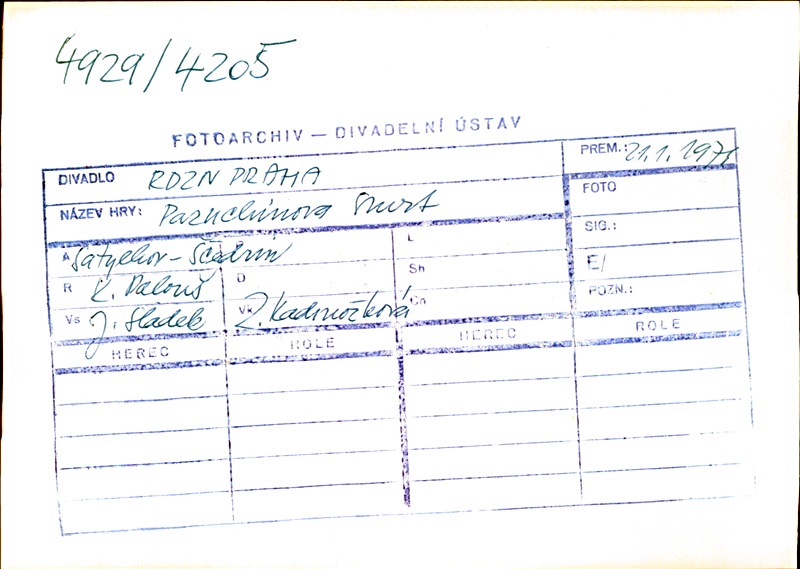 4929/4205
FOTOARCHIV — DIVADELNÍ ÚSTAV
DIVADLO RDZN PRAHA
PREM.: 21.1.1971
NÁZEV HRY: Pazuchinova Smrt
FOTO
SIG.:
E/
POZN.:
A Satykov-Ščedrin
L
R K. Palouš
D
Sh
Vs J. Sládek
Vk Z. Kadrnožková
Cn
HEREC
ROLE
HEREC
ROLE